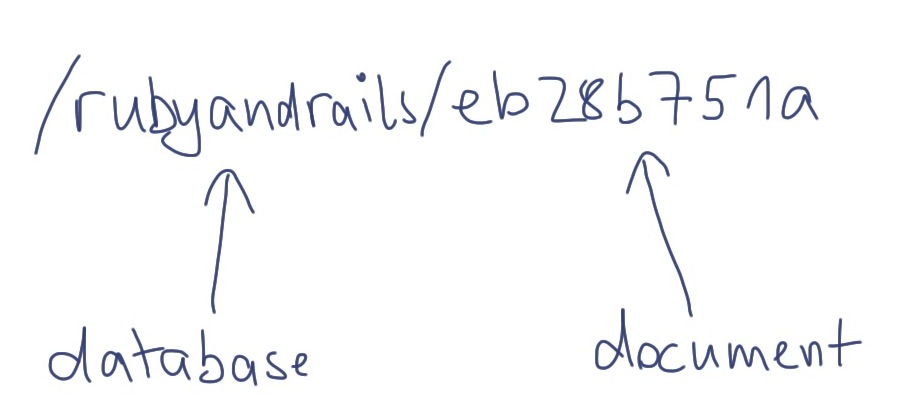 /rubyandrails/eb28b751a
database document